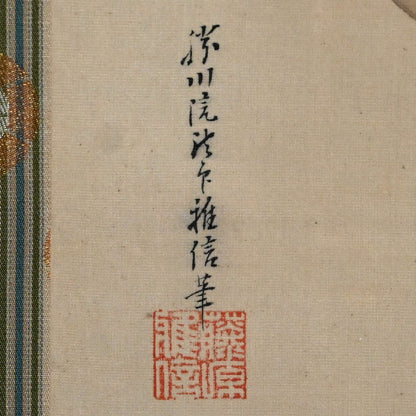 勝川院法印雅信筆
藤原
雅信